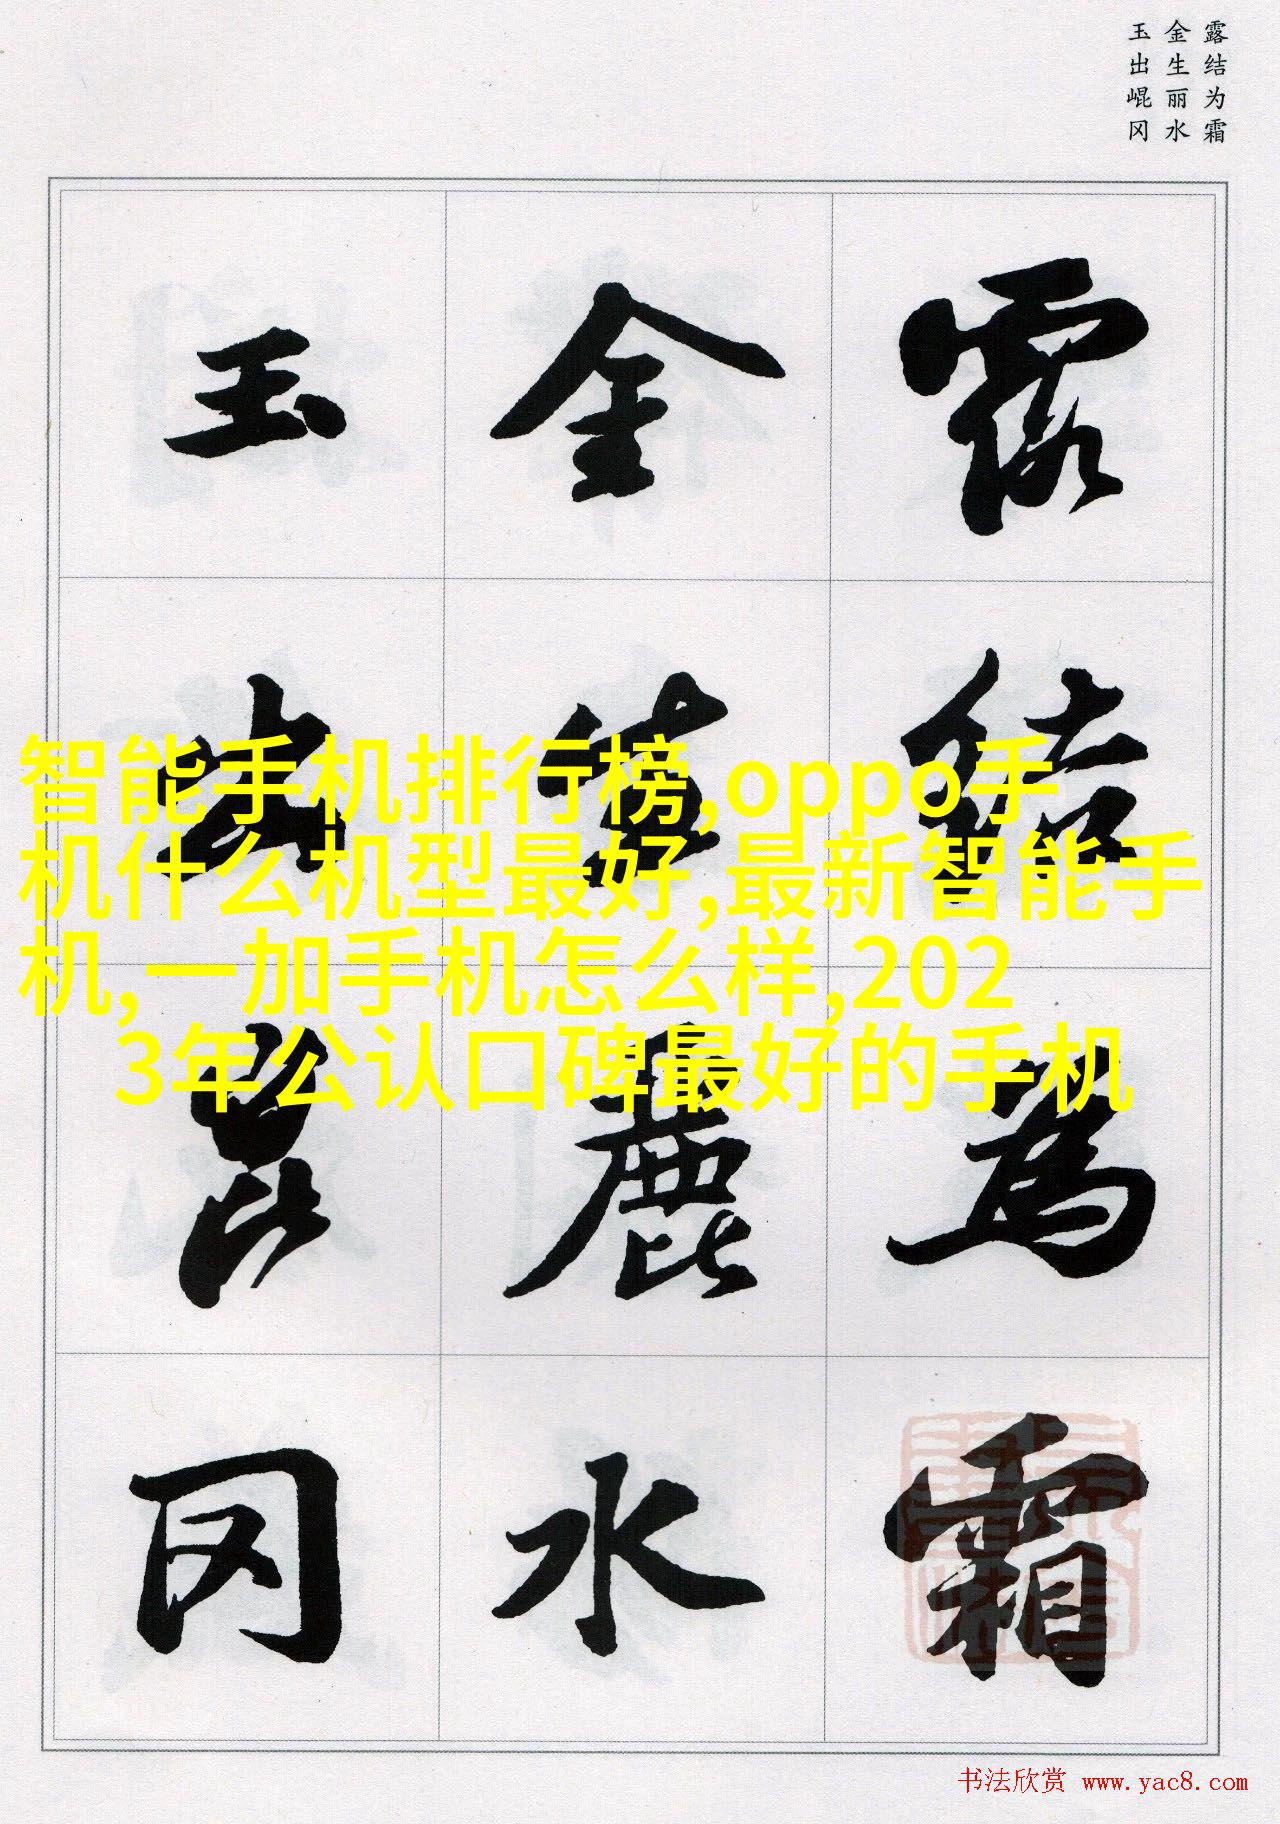 露结为霜
金生丽水
玉出崐冈
露结為霜
金生麗水
玉出崑冈
智能手机排行榜,oppo手
机什么机型最好,最新智能手
机,一加手机怎么样,202
3年公认口碑最好的手机
书法欣赏 www.yac8.com